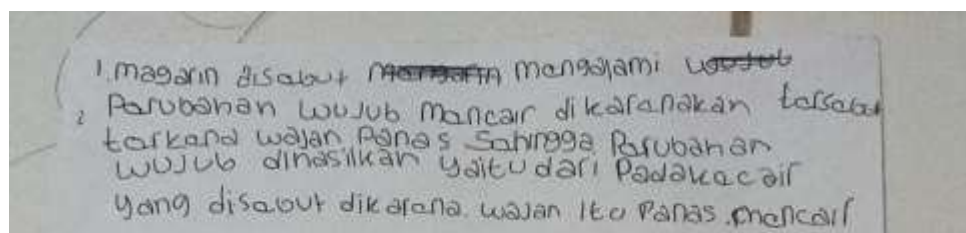 1. magarin disabut mangalami
2 Parubahan wujub mancair dikaranakan tarsabut
tarkana wajan Panas Sahingga Parubahan
wujub dihasilkan yaitu dari Padakacair
yang disabut dikarana. wajan itu Panas. mancair